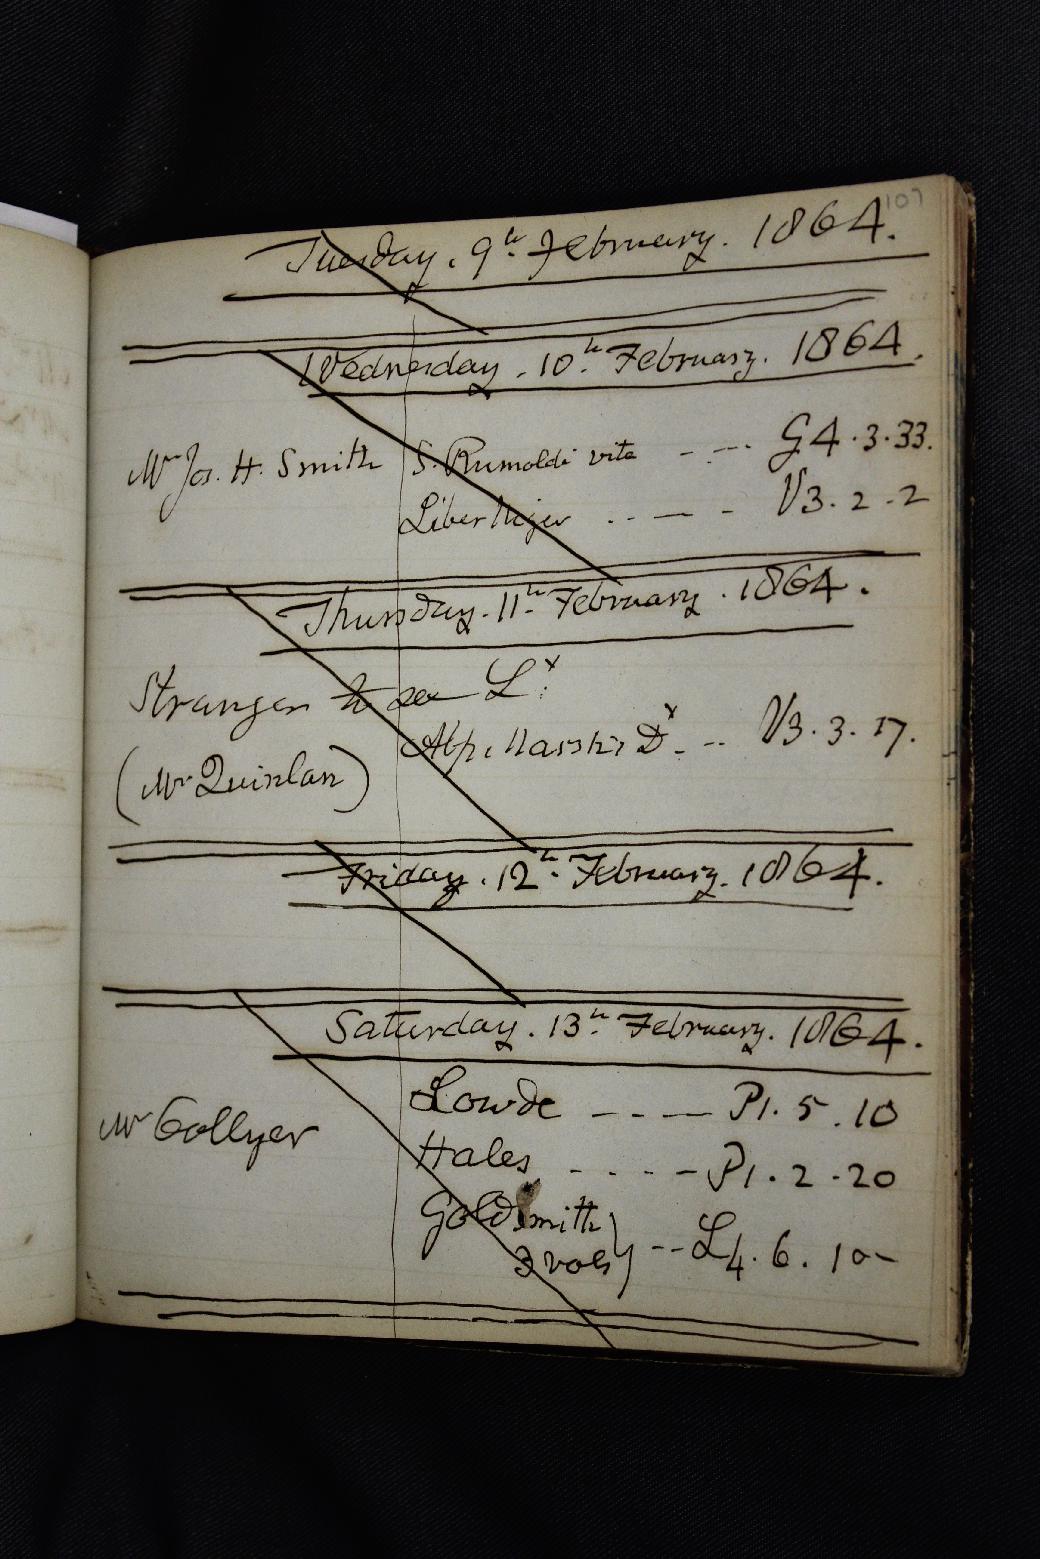 107
Tuesday. 9th. February. 1864.
Wednesday. 10th. February. 1864.
Mr Jos. H. Smith S. Rumoldi vita - - - G4.3.33.
Liber Niger - - - - V3.2.2
Thursday. 11th. February. 1864.
Stranger to see Lx:
Abp. Marsh's Dx. - - V3.3.17.
(Mr Quinlan)
Friday. 12th. February. 1864.
Saturday. 13th. February. 1864.
Mr Collyer Lowde - - - - P1.5.10
Hales - - - - - P1.2.20
Goldsmith
3 vols } - - L4.6.10-